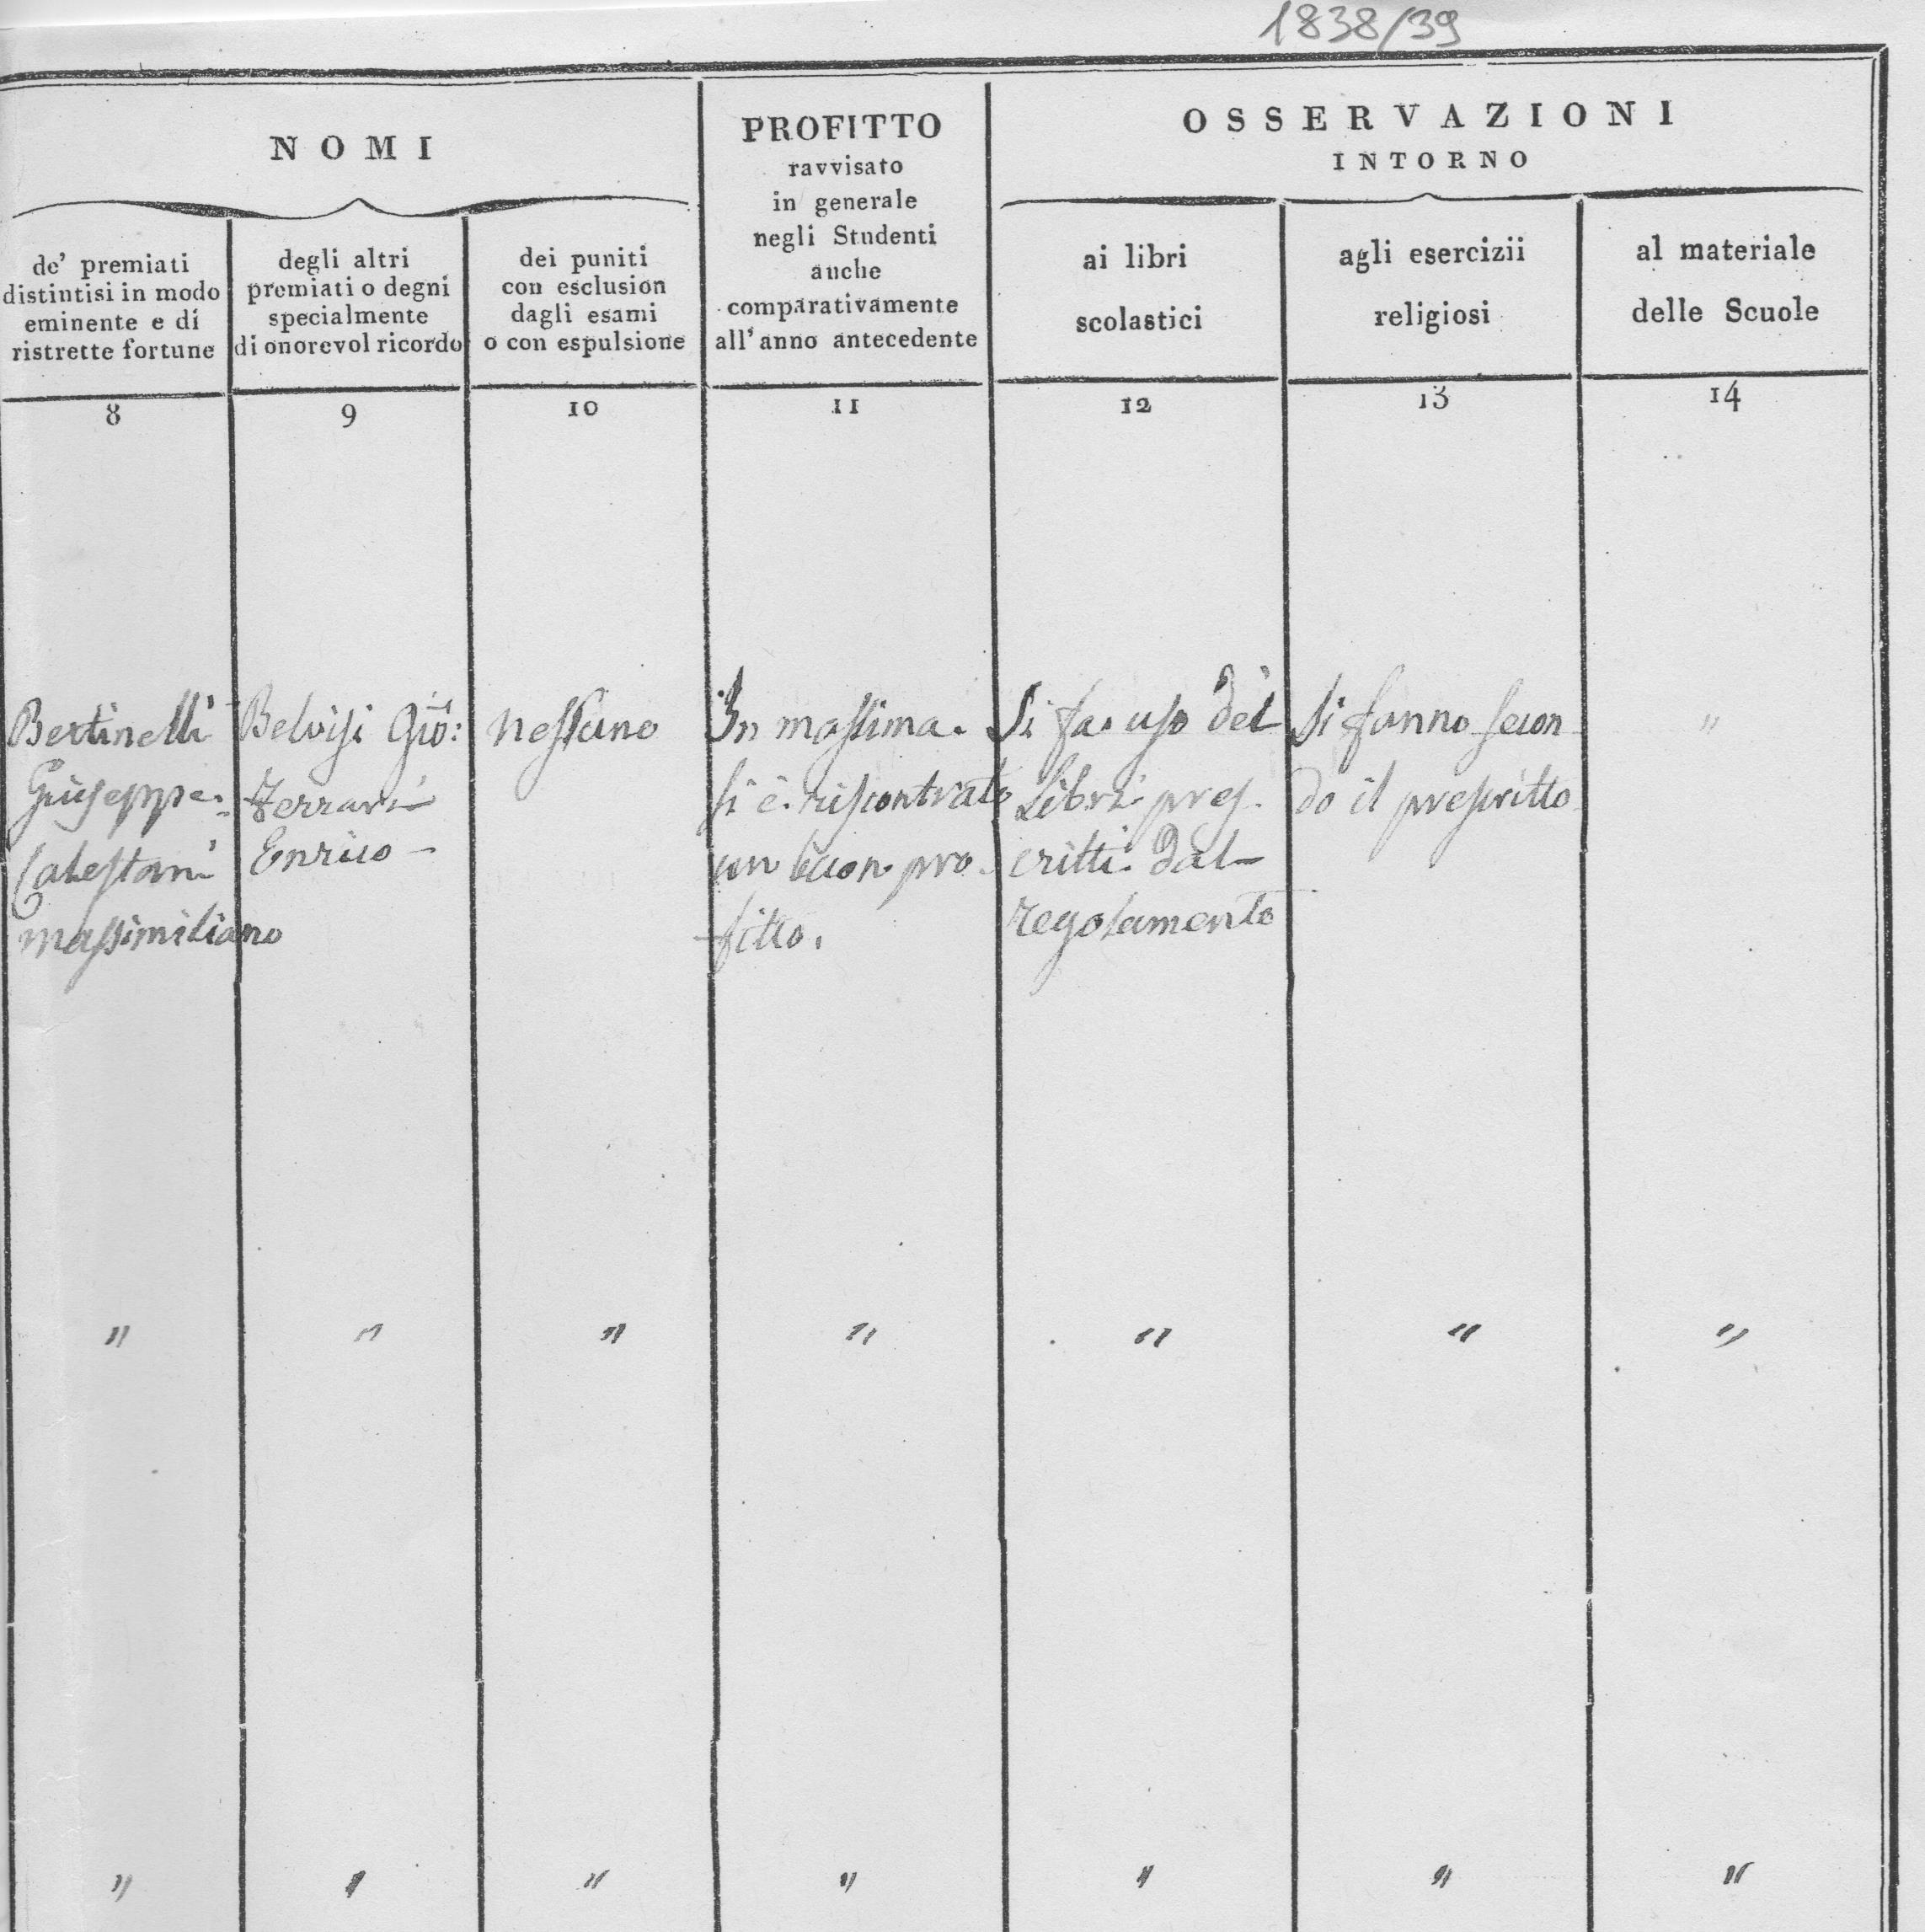 1838/39
NOMI
PROFITTO
ravvisato
in generale
negli Studenti
anche
comparativamente
all'anno antecedente
OSSERVAZIONI
INTORNO
de' premiati
distintisi in modo
eminente e di
ristrette fortune
degli altri
premiati o degni
specialmente
di onorevol ricordo
dei puniti
con esclusion
dagli esami
o con espulsione
ai libri
scolastici
agli esercizii
religiosi
al materiale
delle Scuole
8
9
10
11
12
13
14
Bertinelli
Giuseppe
Calestani
Massimiliano
Belvisi Gio:
Ferrari
Enrico
nessuno
In massima
si è riscontrato
un buon pro
fitto.
Si fa uso dei
Libri pres
critti dal
regolamento
Si fanno secon
do il prescritto
"
" " " " " " "
" " " " " " "